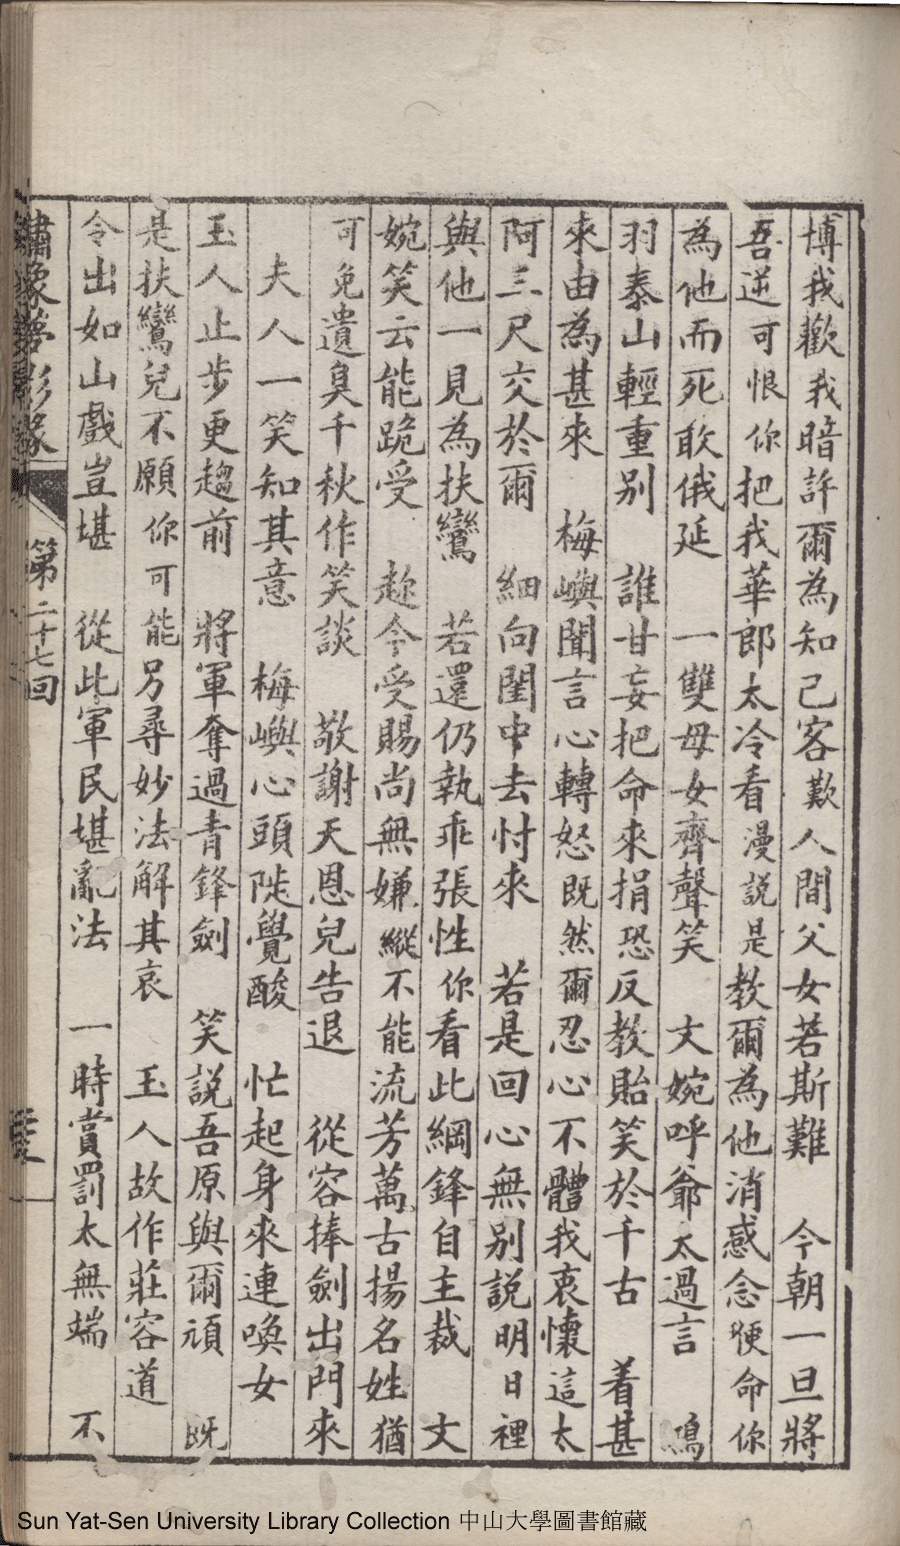 博我歡我暗許爾為知己客歎人間父女若斯難　今朝一旦將
吾逆可恨你把我華郎太冷看漫説是教爾為他消惑念便命你
為他而死敢俄延　一雙母女齊聲笑　文婉呼爺太過言　鴻
羽泰山輕重别　誰甘妄把命來捐恐反教貽笑於千古　着甚
來由為甚來　梅嶼聞言心轉怒既然爾忍心不體我衷懷這太
阿三尺交於爾　細向閨中去忖來　若是回心無别説明日裡
與他一見為扶鸞　若還仍執乖張性你看此綱鋒自主裁　文
婉笑云能跪受　趂今受賜尚無嫌縱不能流芳萬古揚名姓猶
可免遺臭千秋作笑談　敬謝天恩兒告退　從容捧劍出門來
夫人一笑知其意　梅嶼心頭陡覺酸　忙起身來連喚女
玉人止步更趨前　將軍奪過青鋒劍　笑説吾原與爾頑　既
是扶鸞兒不願你可能另尋妙法解其哀　玉人故作莊容道
令出如山戲豈堪　從此軍民堪亂法　一時賞罰太無端　不
繡像夢影緣
第二十七回
Sun Yat-Sen University Library Collection 中山大學圖書館藏